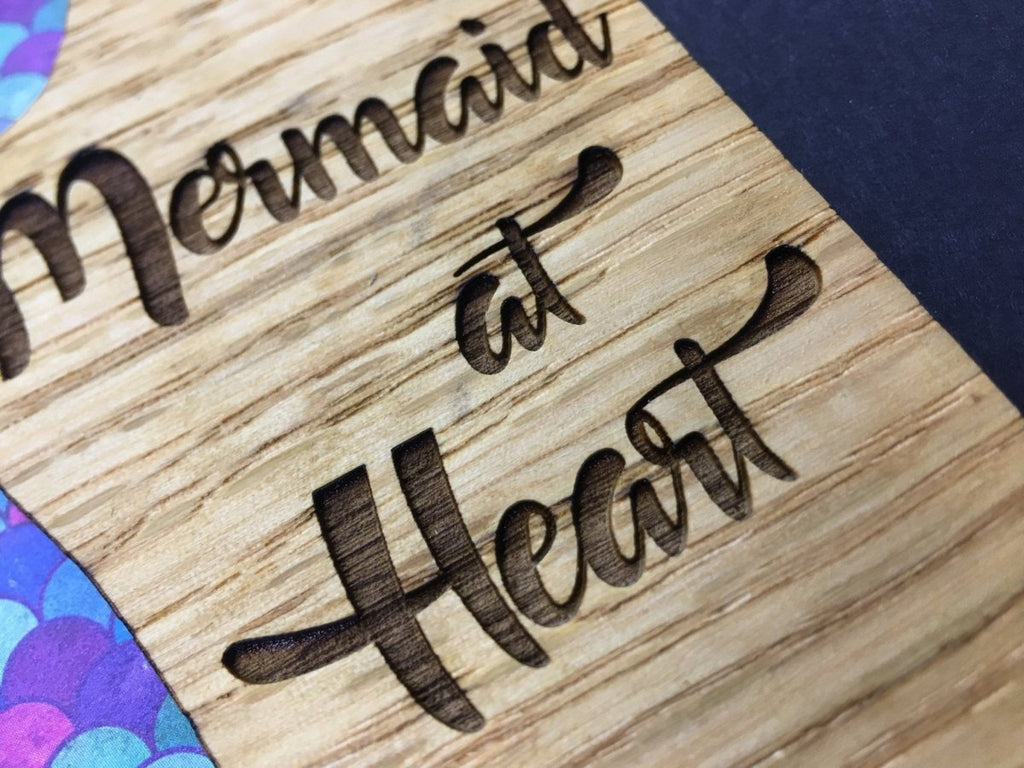 Mermaid
at
Heart